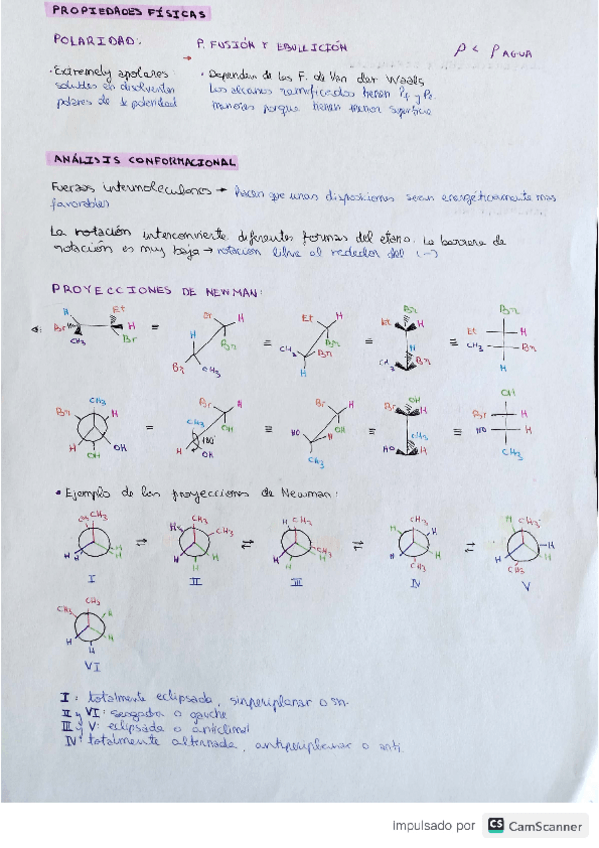 PROPIEDADES FÍSICAS
POLARIDAD:
P. FUSIÓN Y EBULLICIÓN
ρ < ρ AGUA
· Extremely apolares
solubles en disolventes
· Dependen de las F. de Van der Waals
Los alcanos ramificados tienen Pf y Pe
menores porque tienen menor superficie
ANÁLISIS CONFORMACIONAL
Fuerzas intermoleculares → hacen que unas disposiciones sean energéticamente más
favorables
La rotación interconvierte diferentes formas del etano. La barrera de
rotación es muy baja → rotación libre al rededor del (-)
PROYECCIONES DE NEWMAN:
H Et
Br H
CH3 Br
=
Et H
H Br
Br CH3
≡
Et H
CH3 Br Br
H
≡
Br
Et H
H
CH3 Br
≡
Br
Et H
CH3 Br
H
CH3
Br H
H OH
OH
=
Br H
CH3 OH
180°
H OH
≡
Br H
HO H OH
CH3
≡
OH
Br H
CH3
HO H
≡
OH
Br H
HO H
CH3
• Ejemplo de las proyecciones de Newman:
CH3 CH3
H H
H H
I
⇄
CH3
H CH3
H H
H
II
⇄
H CH3
CH3
H H
III
⇄
CH3
H H
H H
CH3
IV
⇄
H CH3
H
H H
CH3
V
CH3 CH3 H
H H
H
VI
I: totalmente eclipsada, sinperiplanar o sin.
II y VI: sesgada o gauche
III y V: eclipsada o anticlinal
IV: totalmente alternada, antiperiplanar o anti.
Impulsado por CS CamScanner